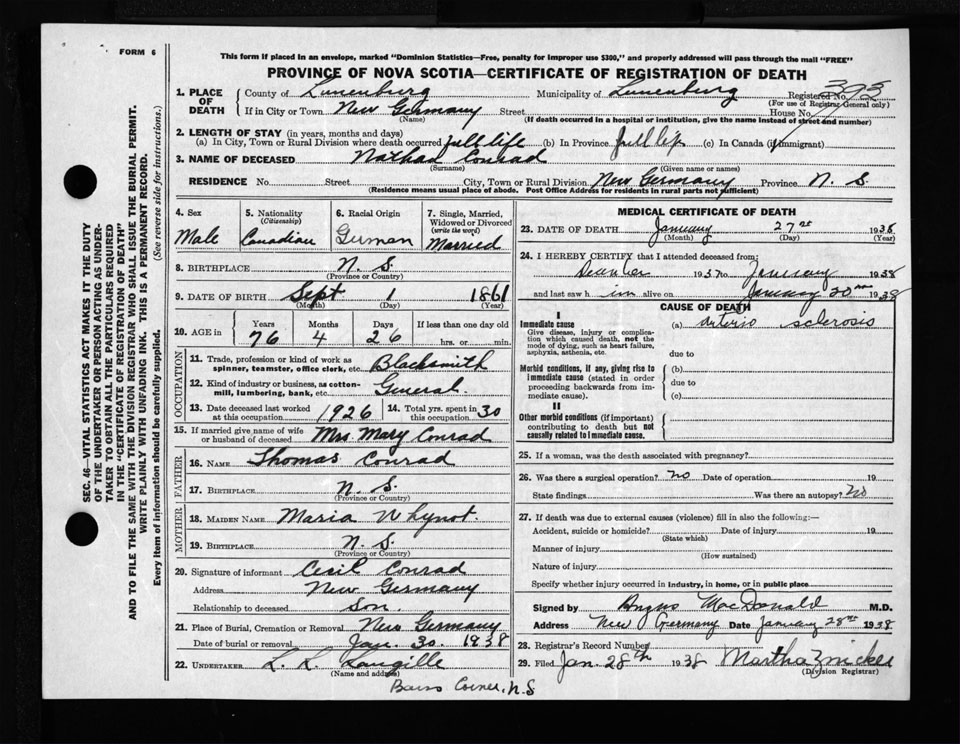 FORM 6
This form if placed in an envelope, marked "Dominion Statistics—Free, penalty for improper use $300," and properly addressed will pass through the mail "FREE"
PROVINCE OF NOVA SCOTIA—CERTIFICATE OF REGISTRATION OF DEATH
SEC. 46—VITAL STATISTICS ACT MAKES IT THE DUTY
OF THE UNDERTAKER OR PERSON ACTING AS UNDER-
TAKER TO OBTAIN ALL THE PARTICULARS REQUIRED
IN THE "CERTIFICATE OF REGISTRATION OF DEATH"
AND TO FILE THE SAME WITH THE DIVISION REGISTRAR WHO SHALL ISSUE THE BURIAL PERMIT.
WRITE PLAINLY WITH UNFADING INK. THIS IS A PERMANENT RECORD.
Every item of information should be carefully supplied. (See reverse side for instructions.)
1. PLACE OF DEATH
County of Lunenburg Municipality of Lunenburg Registered No. 393
(For use of Registrar General only)
If in City or Town New Germany Street House No.
(Name) (If death occurred in a hospital or institution, give the name instead of street and number)
2. LENGTH OF STAY (in years, months and days)
(a) In City, Town or Rural Division where death occurred full life (b) In Province full life (c) In Canada (if immigrant)
3. NAME OF DECEASED Nathan Conrad
(Surname) (Given name or names)
RESIDENCE No. Street City, Town or Rural Division New Germany Province N. S.
(Residence means usual place of abode. Post Office Address for residents in rural parts not sufficient)
4. Sex Male
5. Nationality (Citizenship) Canadian
6. Racial Origin German
7. Single, Married, Widowed or Divorced (write the word) Married
8. BIRTHPLACE N. S.
(Province or Country)
9. DATE OF BIRTH Sept 1 1861
(Month) (Day) (Year)
10. AGE in Years Months Days If less than one day old
76 4 26 hrs. or min.
OCCUPATION
11. Trade, profession or kind of work as spinner, teamster, office clerk, etc. Blacksmith
12. Kind of industry or business, as cotton-mill, lumbering, bank, etc. General
13. Date deceased last worked at this occupation 1926 14. Total yrs. spent in 30
15. If married give name of wife or husband of deceased Mrs Mary Conrad
FATHER
16. NAME Thomas Conrad
17. BIRTHPLACE N. S.
(Province or Country)
MOTHER
18. MAIDEN NAME Maria Whynot.
19. BIRTHPLACE N. S.
(Province or Country)
20. Signature of informant Cecil Conrad
Address New Germany
Relationship to deceased Son.
21. Place of Burial, Cremation or Removal New Germany
Date of burial or removal Jan. 30. 1938
22. UNDERTAKER L. L. Langille
(Name and address)
Barss Corner, N.S
MEDICAL CERTIFICATE OF DEATH
23. DATE OF DEATH January 27 1938
(Month) (Day) (Year)
24. I HEREBY CERTIFY that I attended deceased from:
1937 to January 1938
and last saw h im alive on January 20 1938
CAUSE OF DEATH
I
Immediate cause
Give disease, injury or complication which caused death, not the mode of dying, such as heart failure, asphyxia, asthenia, etc.
(a) Arterio sclerosis
due to
Morbid conditions, if any, giving rise to immediate cause (stated in order proceeding backwards from immediate cause).
(b)
due to
(c)
II
Other morbid conditions (if important) contributing to death but not causally related to immediate cause.
25. If a woman, was the death associated with pregnancy?
26. Was there a surgical operation? no Date of operation 19
State findings Was there an autopsy? no
27. If death was due to external causes (violence) fill in also the following:—
Accident, suicide or homicide? Date of injury 19
(State which)
Manner of injury
(How sustained)
Nature of injury
Specify whether injury occurred in industry, in home, or in public place
Signed by Angus MacDonald M.D.
Address New Germany Date January 28 1938
28. Registrar's Record Number
29. Filed Jan. 28th 1938 Martha Zinck
(Division Registrar)